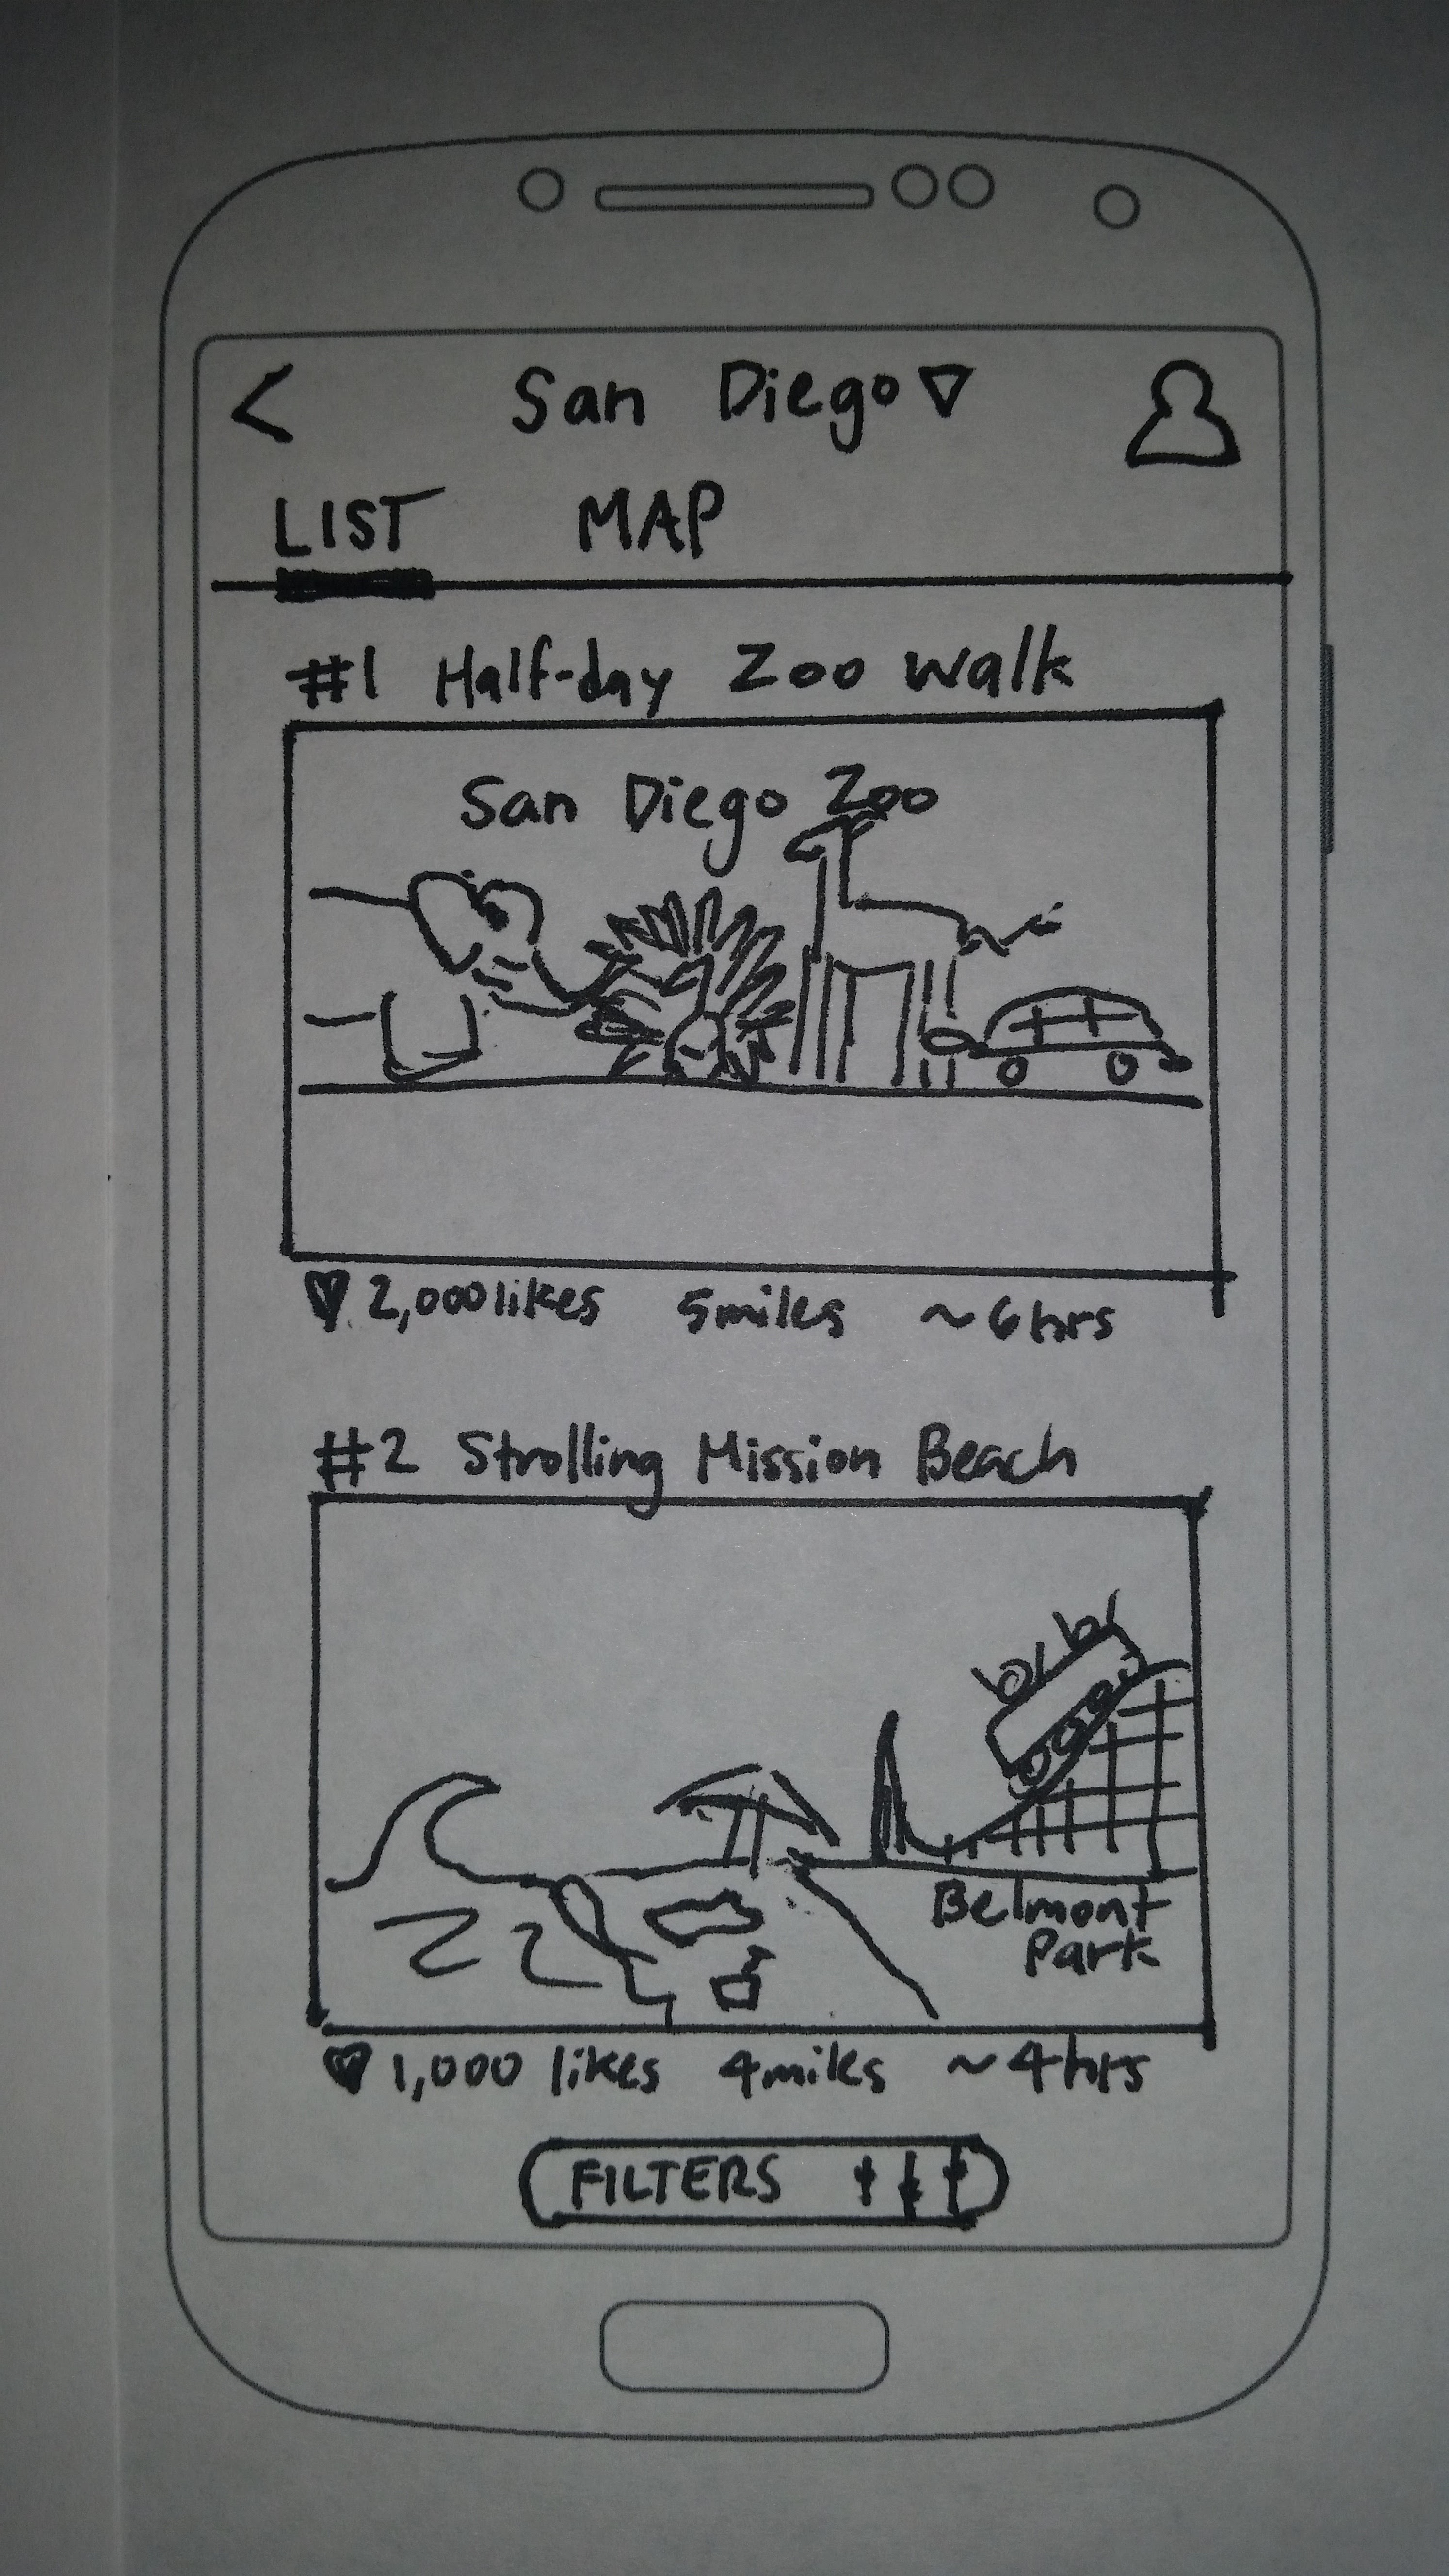 San Diego
LIST MAP
#1 Half-day Zoo walk
San Diego Zoo
2,000 likes 5miles ~6hrs
#2 Strolling Mission Beach
Belmont
Park
1,000 likes 4miles ~4hrs
FILTERS